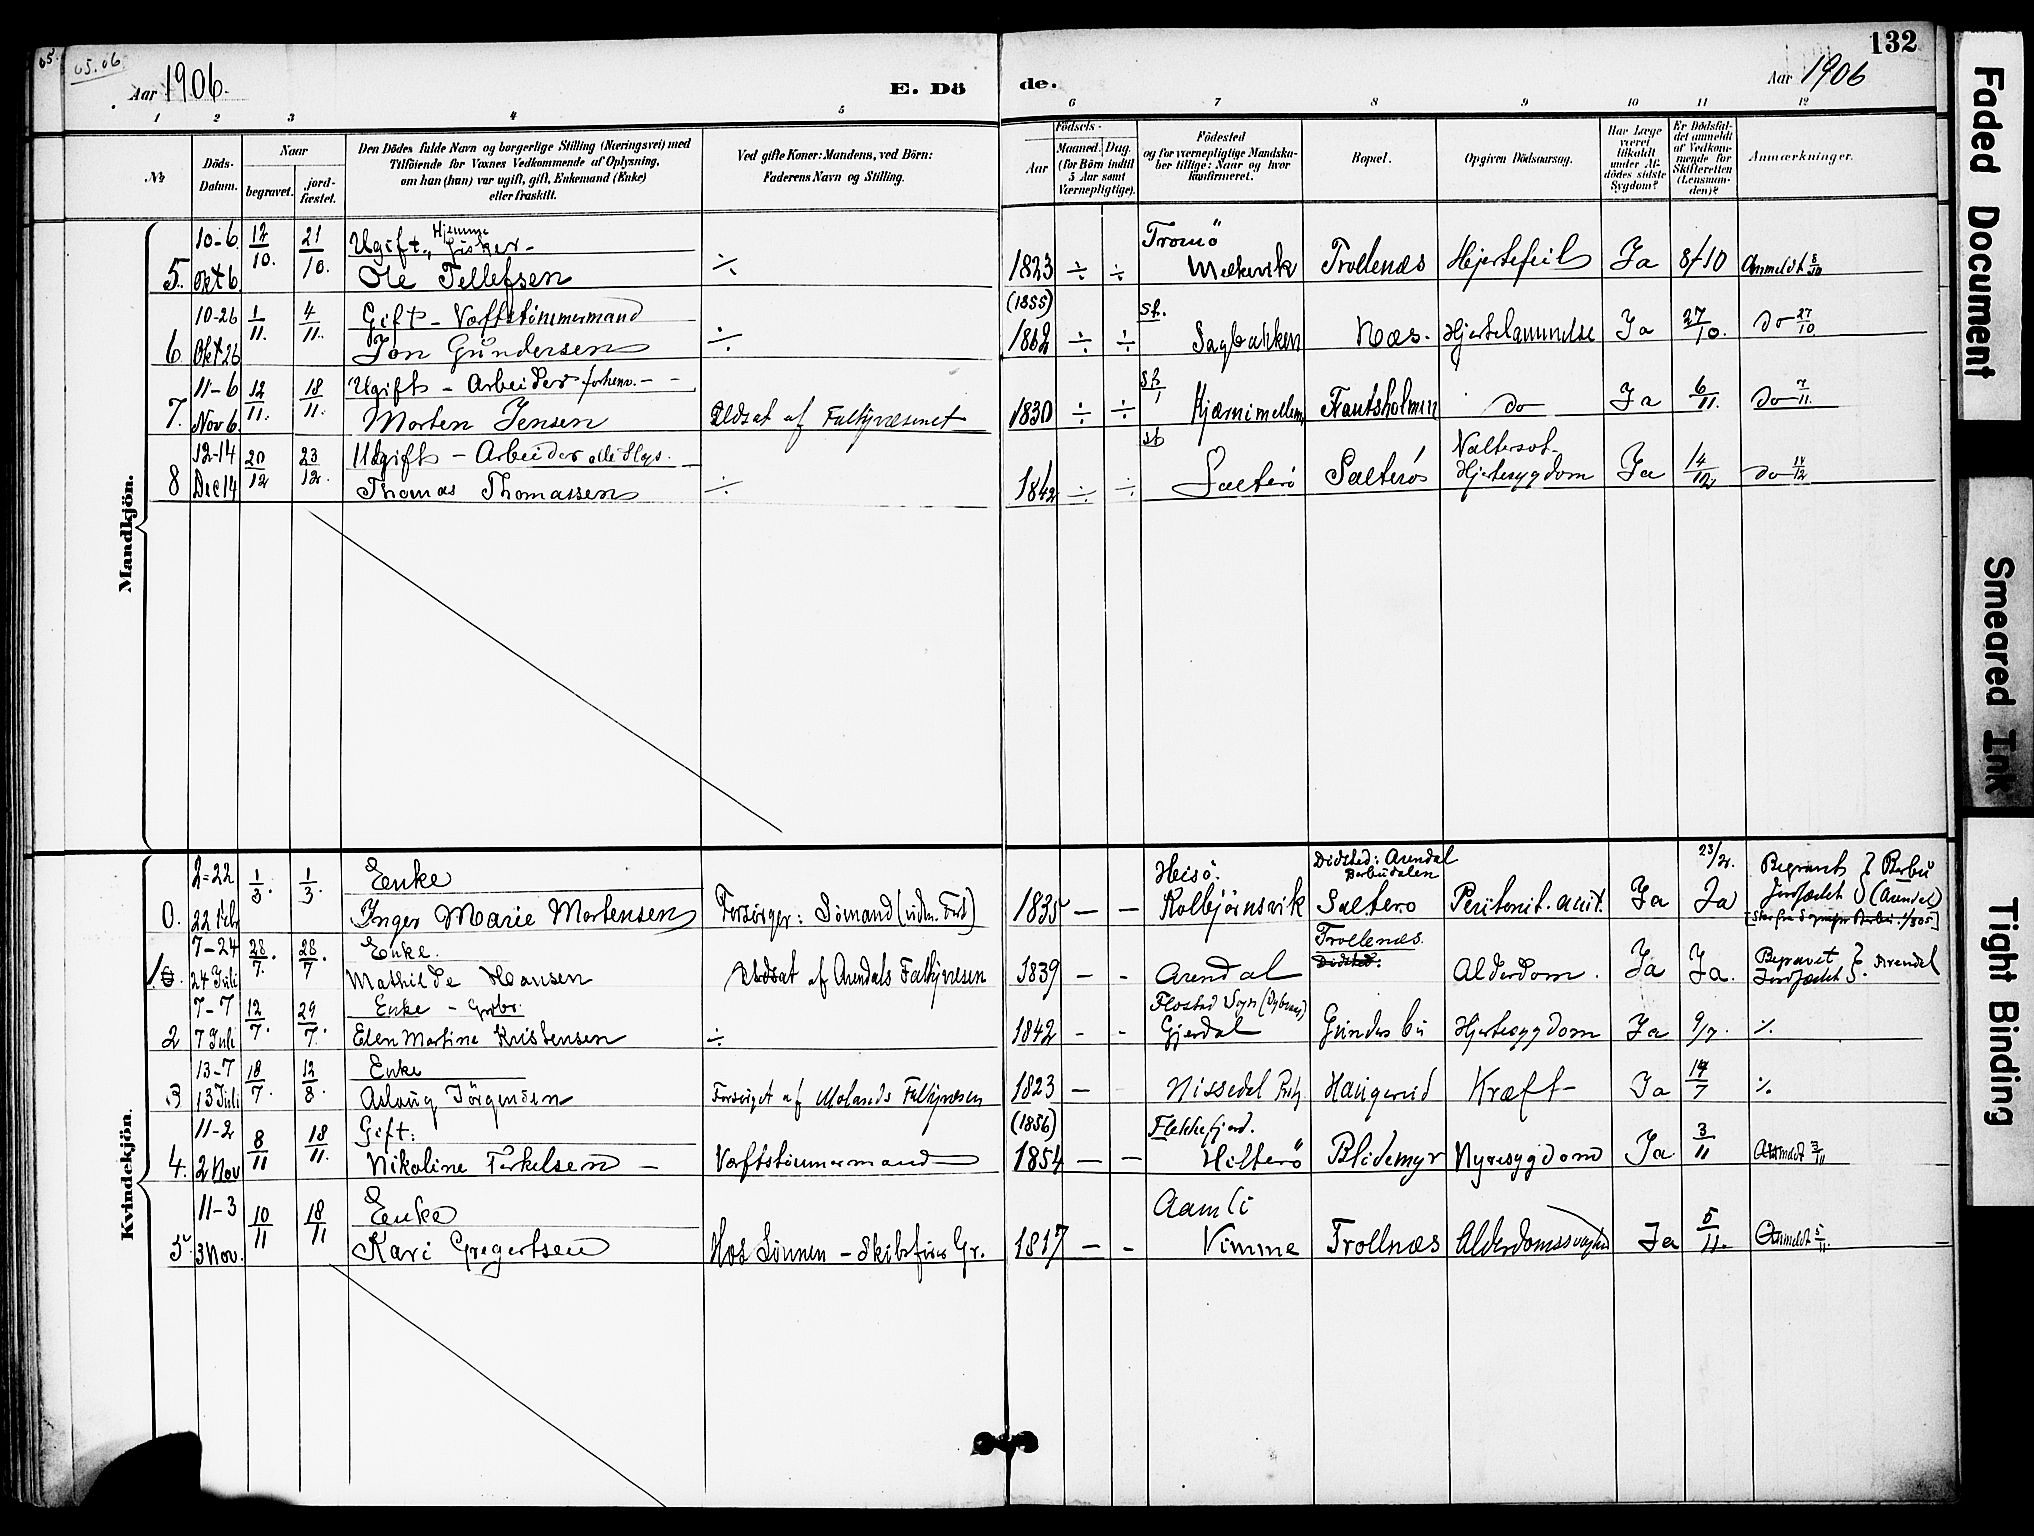 05.06
Aar 1906.
E. Döde.
132
Aar 1906
1 2 3 4 5 6 7 8 9 10 11 12
№
Döds-Datum.
Naar
begravet.
jord-fæstet.
Den Dödes fulde Navn og borgerlige Stilling (Næringsvei) med
Tilföiende for Voxnes Vedkommende af Oplysning,
om han (hun) var ugift, gift, Enkemand (Enke)
eller fraskilt.
Ved gifte Koner: Mandens, ved Börn:
Faderens Navn og Stilling.
Födsels-
Aar
Maaned. Dag.
(for Börn indtil
5 Aar samt
Værnepligtige).
Födested
og for værnepligtige Mandska-
ber tillige: Naar og hvor
konfirmeret.
Bopæl.
Opgiven Dödsaarsag.
Har Læge
været
tilkaldt
under Af-
dödes sidste
Sygdom?
Er Dödsfal-
det anmeldt
af Vedkom-
mende for
Skifteretten
(Lensman-
den)?
Anmærkninger.
Mandkjön.
10-6 12/10. 21/10. Ugift, Hjemme Fisker- Tromö
5. Okt 6 Ole Tellefsen ÷ 1823 ÷ ÷ Trollenæs Hjertefeil Ja 8/10 Anmeldt 8/10
10-26 1/11. 4/11. Gift - Værftstömmermand (1855)
6 Okt 26 Jon Gundersen ÷ 1862 ÷ ÷ Sagbakken Næs. Hjertelammelse Ja 27/10. do 27/10
11-6 12/11. 18/11. Ugift - Arbeider forhenv. -
7. Nov 6 Morten Jensen Udsat af Fattigvæsenet 1830 ÷ ÷ do Ja 6/11. do 7/11.
12-14 20/12 23/12. Ugift - Arbeider
8 Dec 14 Thomas Thomassen ÷ 1842 ÷ ÷ Sælterö Sælterö Hjertesygdom Ja 14/12 do 14/12
Kvindekjön.
2-22 1/3. 1/3. Enke Heisö. Didsted: Arendal Barbudalen 23/2. Begravet } Barbu
0. 22 Febr Inger Marie Mortensen Forsörger: Sömand 1835 - - Kolbjörnsvik Sælterö Peritonit. acut. Ja Ja Jordfæstet } (Arendal)
7-24 28/7. 28/7 Enke. Trollenæs.
24 Juli Mathilde Hansen Udsat af Arendals Fattigvæsen 1839 - - Arendal Didsted: Alderdom. Ja Ja. Begravet Jordfæstet } Arendal
7-7 12/7. 29/7. Enke - Flosta Sogn
2 7 Juli Elen Martine Kristensen ÷ 1842 - - Gjerdal Gunders bu Hjertesygdom Ja 9/7. ⁒
13-7 18/7. 12/8. Enke
3 13 Juli Aslaug Jörgensen Forsörget af Molands Fattigvæsen 1823 - Nissedal Haugerud Kræft - Ja 14/7 ⁒
11-2 8/11 18/11. Gift: (1856) Flekkefjord.
4. 2 Nov Nikoline Terkelsen - Værftstömmermand 1854 - - Hitterö Blidemyr Nyresygdom Ja 3/11 Anmeldt 3/11
11-3 10/11 18/11 Enke Aamli
5 3 Nov. Kari Gregertsen Hos Sönnen - Skibsförer Gr. 1817 - - Vimme Trollnæs Alderdomssvaghed Ja 5/11. Anmeldt 5/11.
Faded Document
Smeared Ink
Tight Binding